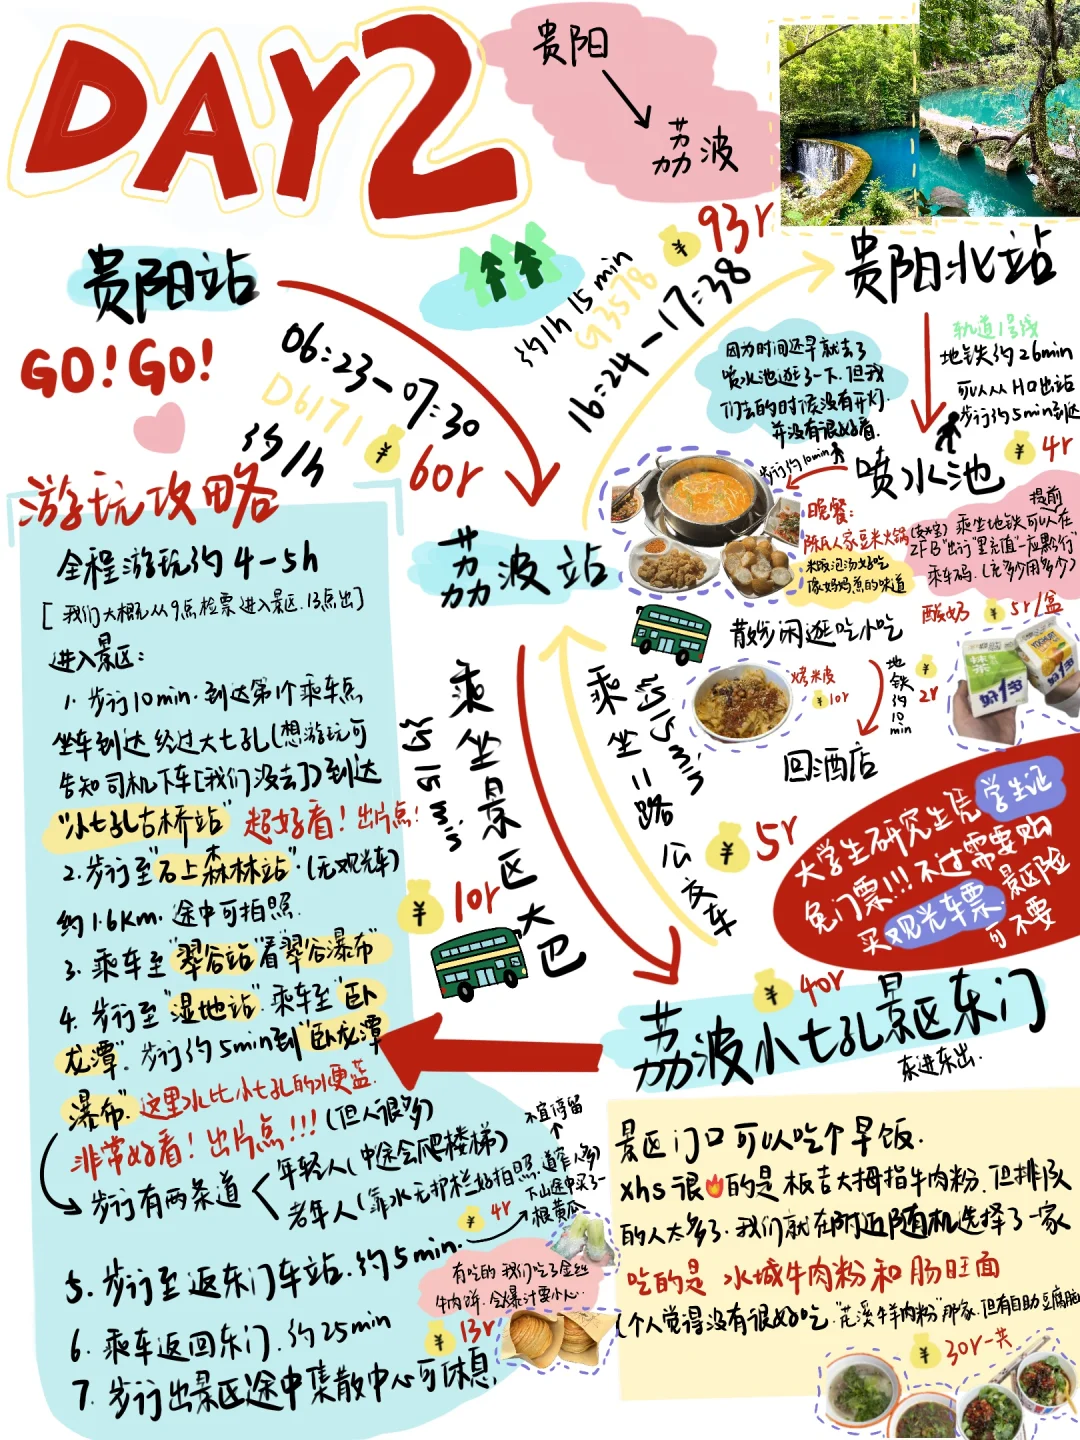 DAY2
贵阳
荔波
贵阳站
GO! GO!
06:23-07:30
D6171
约1h
60r
约1h15min
G3578
16:24-17:38
93r
贵阳北站
轨道1号线
地铁约26min
可以从H口出站
步行约5min到达
4r
因为时间还早就去了
喷水池逛了一下.但我
们去的时候没有开灯.
并没有很好看.
步行约10min
喷水池
晚餐:
陈氏人家豆米火锅
米饭泡汤好吃
像妈妈煮的味道
提前
乘坐地铁可以在
ZFB"出行"里充值一点點行"
乘车码.(充多少用多少)
酸奶
5r/盒
散步闲逛吃小吃
烤米皮
10r
地铁约10min
2r
回酒店
荔波站
乘坐景区大巴
约15min
10r
乘坐二路公交车
约15min
5r
大学生研究生凭学生证
免门票!!!不过需要购
买观光车票.景区险
可不要
40r
荔波小七孔景区东门
东进东出.
景区门口可以吃个早饭.
xhs很🔥的是板吉大拇指牛肉粉.但排队
的人太多了.我们就在附近随机选择了一家
吃的是 水城牛肉粉和肠旺面
(个人觉得没有很好吃."花溪牛羊肉粉"那家.但有自助豆腐脑
30r一共
游玩攻略
全程游玩约4-5h
[我们大概从9点检票进入景区.13点出]
进入景区:
1. 步行10min.到达第1个乘车点
坐车到达 经过大七孔(想游玩可
告知司机下车[我们没去])到达
"小七孔古桥站" 超好看!出片点!
2.步行至"石上森林站".(无观光车)
约1.6Km.途中可拍照.
3. 乘车至"翠谷站"看"翠谷瀑布"
4. 步行至"湿地站".乘车至"卧
龙潭".步行约5min到"卧龙潭
瀑布".这里水比小七孔的水更蓝.
非常好看!出片点!!!(但人很多)
步行有两条道
年轻人(中途会爬楼梯)
老年人(靠水无护栏好拍照,道窄人多)
不宜停留
下山途中买了一
根黄瓜
4r
5. 步行至返东门车站.约5min.
有吃的 我们吃了金丝
牛肉饼.会爆汁要小心.
13r
6. 乘车返回东门.约25min
7. 步行出景区途中集散中心可休息.